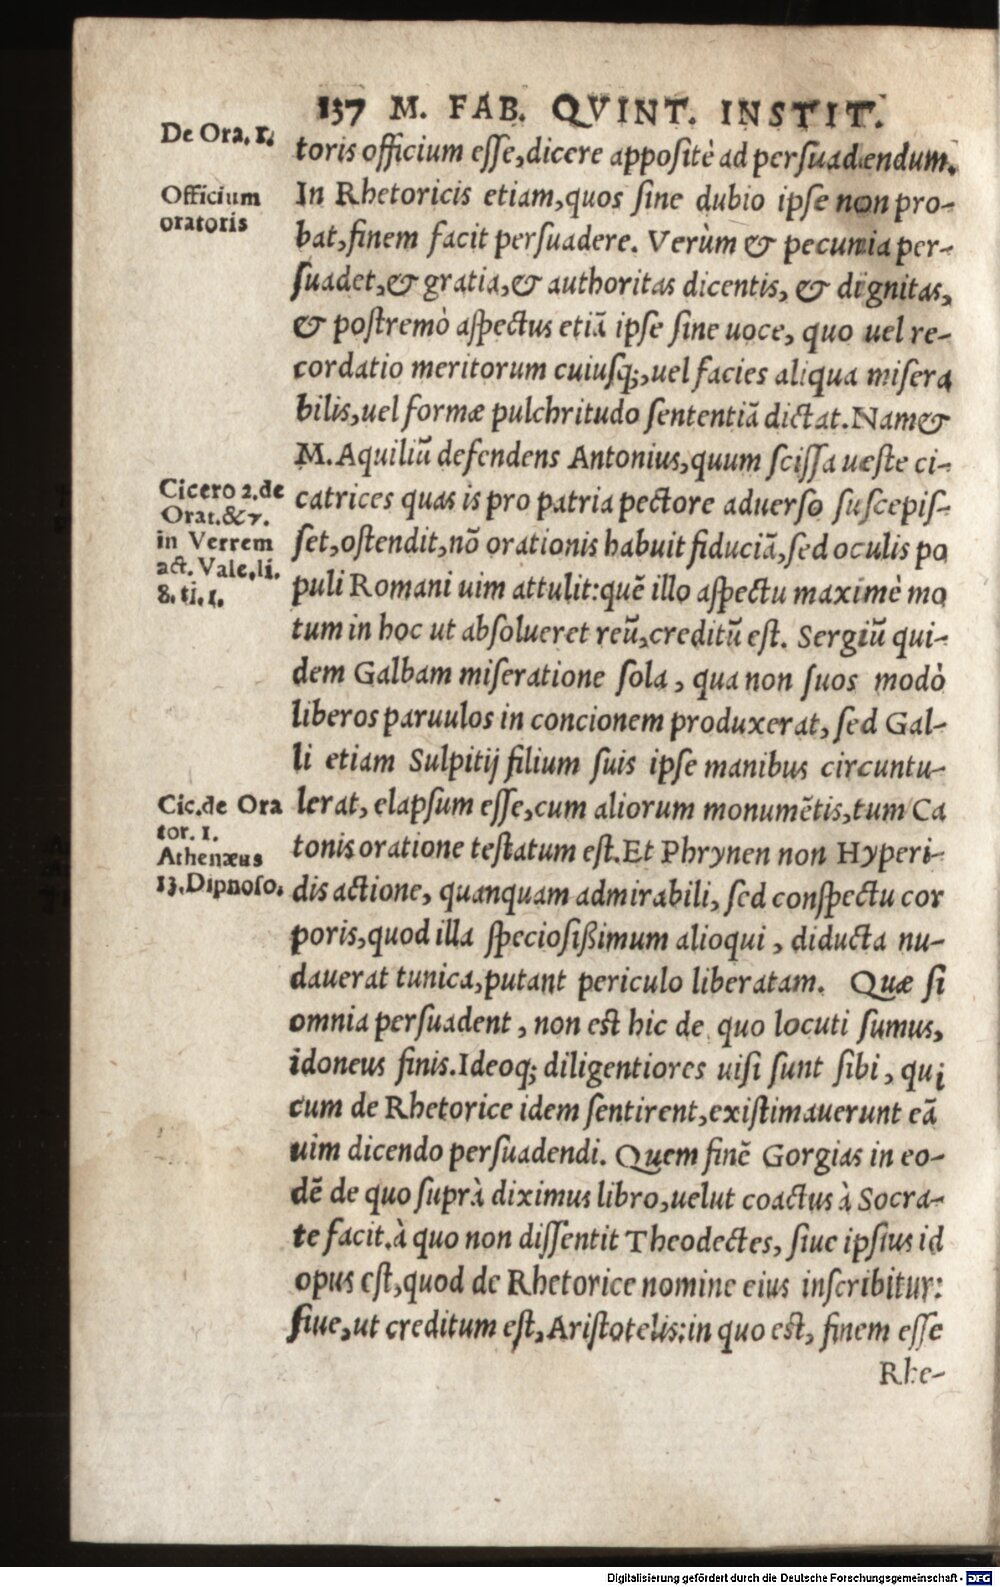 137 M. FAB. QVINT. INSTIT.
De Ora. 1.
toris officium eſſe, dicere appoſitè ad perſuadendum.
Officium
oratoris
In Rhetoricis etiam, quos ſine dubio ipſe non pro-
bat, finem facit perſuadere. Verùm & pecunia per-
ſuadet, & gratia, & authoritas dicentis, & dignitas,
& poſtremò aſpectus etiā ipſe ſine uoce, quo uel re-
cordatio meritorum cuiuſq;, uel facies aliqua miſera
bilis, uel formæ pulchritudo ſententiā dictat. Nam &
M. Aquiliū defendens Antonius, quum ſciſſa ueſte ci-
Cicero 2. de
Orat. & 7.
in Verrem
act. Vale, li.
8. ti. 1.
catrices quas is pro patria pectore aduerſo ſuſcepiſ-
ſet, oſtendit, nō orationis habuit fiduciā, ſed oculis po
puli Romani uim attulit: quē illo aſpectu maximè mo
tum in hoc ut abſolueret reū, creditū eſt. Sergiū qui-
dem Galbam miſeratione ſola, qua non ſuos modò
liberos paruulos in concionem produxerat, ſed Gal-
li etiam Sulpitij filium ſuis ipſe manibus circuntu-
Cic. de Ora
tor. 1.
Athenæus
13. Dipnoſo.
lerat, elapſum eſſe, cum aliorum monumētis, tum Ca
tonis oratione teſtatum eſt. Et Phrynen non Hyperi-
dis actione, quanquam admirabili, ſed conſpectu cor
poris, quod illa ſpecioſißimum alioqui, diducta nu-
dauerat tunica, putant periculo liberatam. Quæ ſi
omnia perſuadent, non eſt hic de quo locuti ſumus,
idoneus finis. Ideoq; diligentiores uiſi ſunt ſibi, qui
cum de Rhetorice idem ſentirent, exiſtimauerunt eā
uim dicendo perſuadendi. Quem finē Gorgias in eo-
dē de quo ſuprà diximus libro, uelut coactus à Socra-
te facit. à quo non diſſentit Theodectes, ſiue ipſius id
opus eſt, quod de Rhetorice nomine eius inſcribitur:
ſiue, ut creditum eſt, Ariſtotelis: in quo eſt, finem eſſe
Rhe-
Digitalisierung gefördert durch die Deutsche Forschungsgemeinschaft - DFG